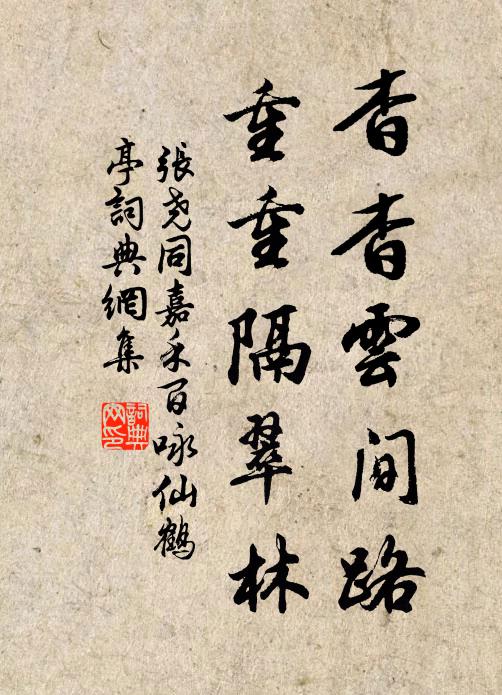 杳杳雲間路
重重隔翠林
張尭同嘉禾百咏仙鶴
亭詞典網集
詞典
网印